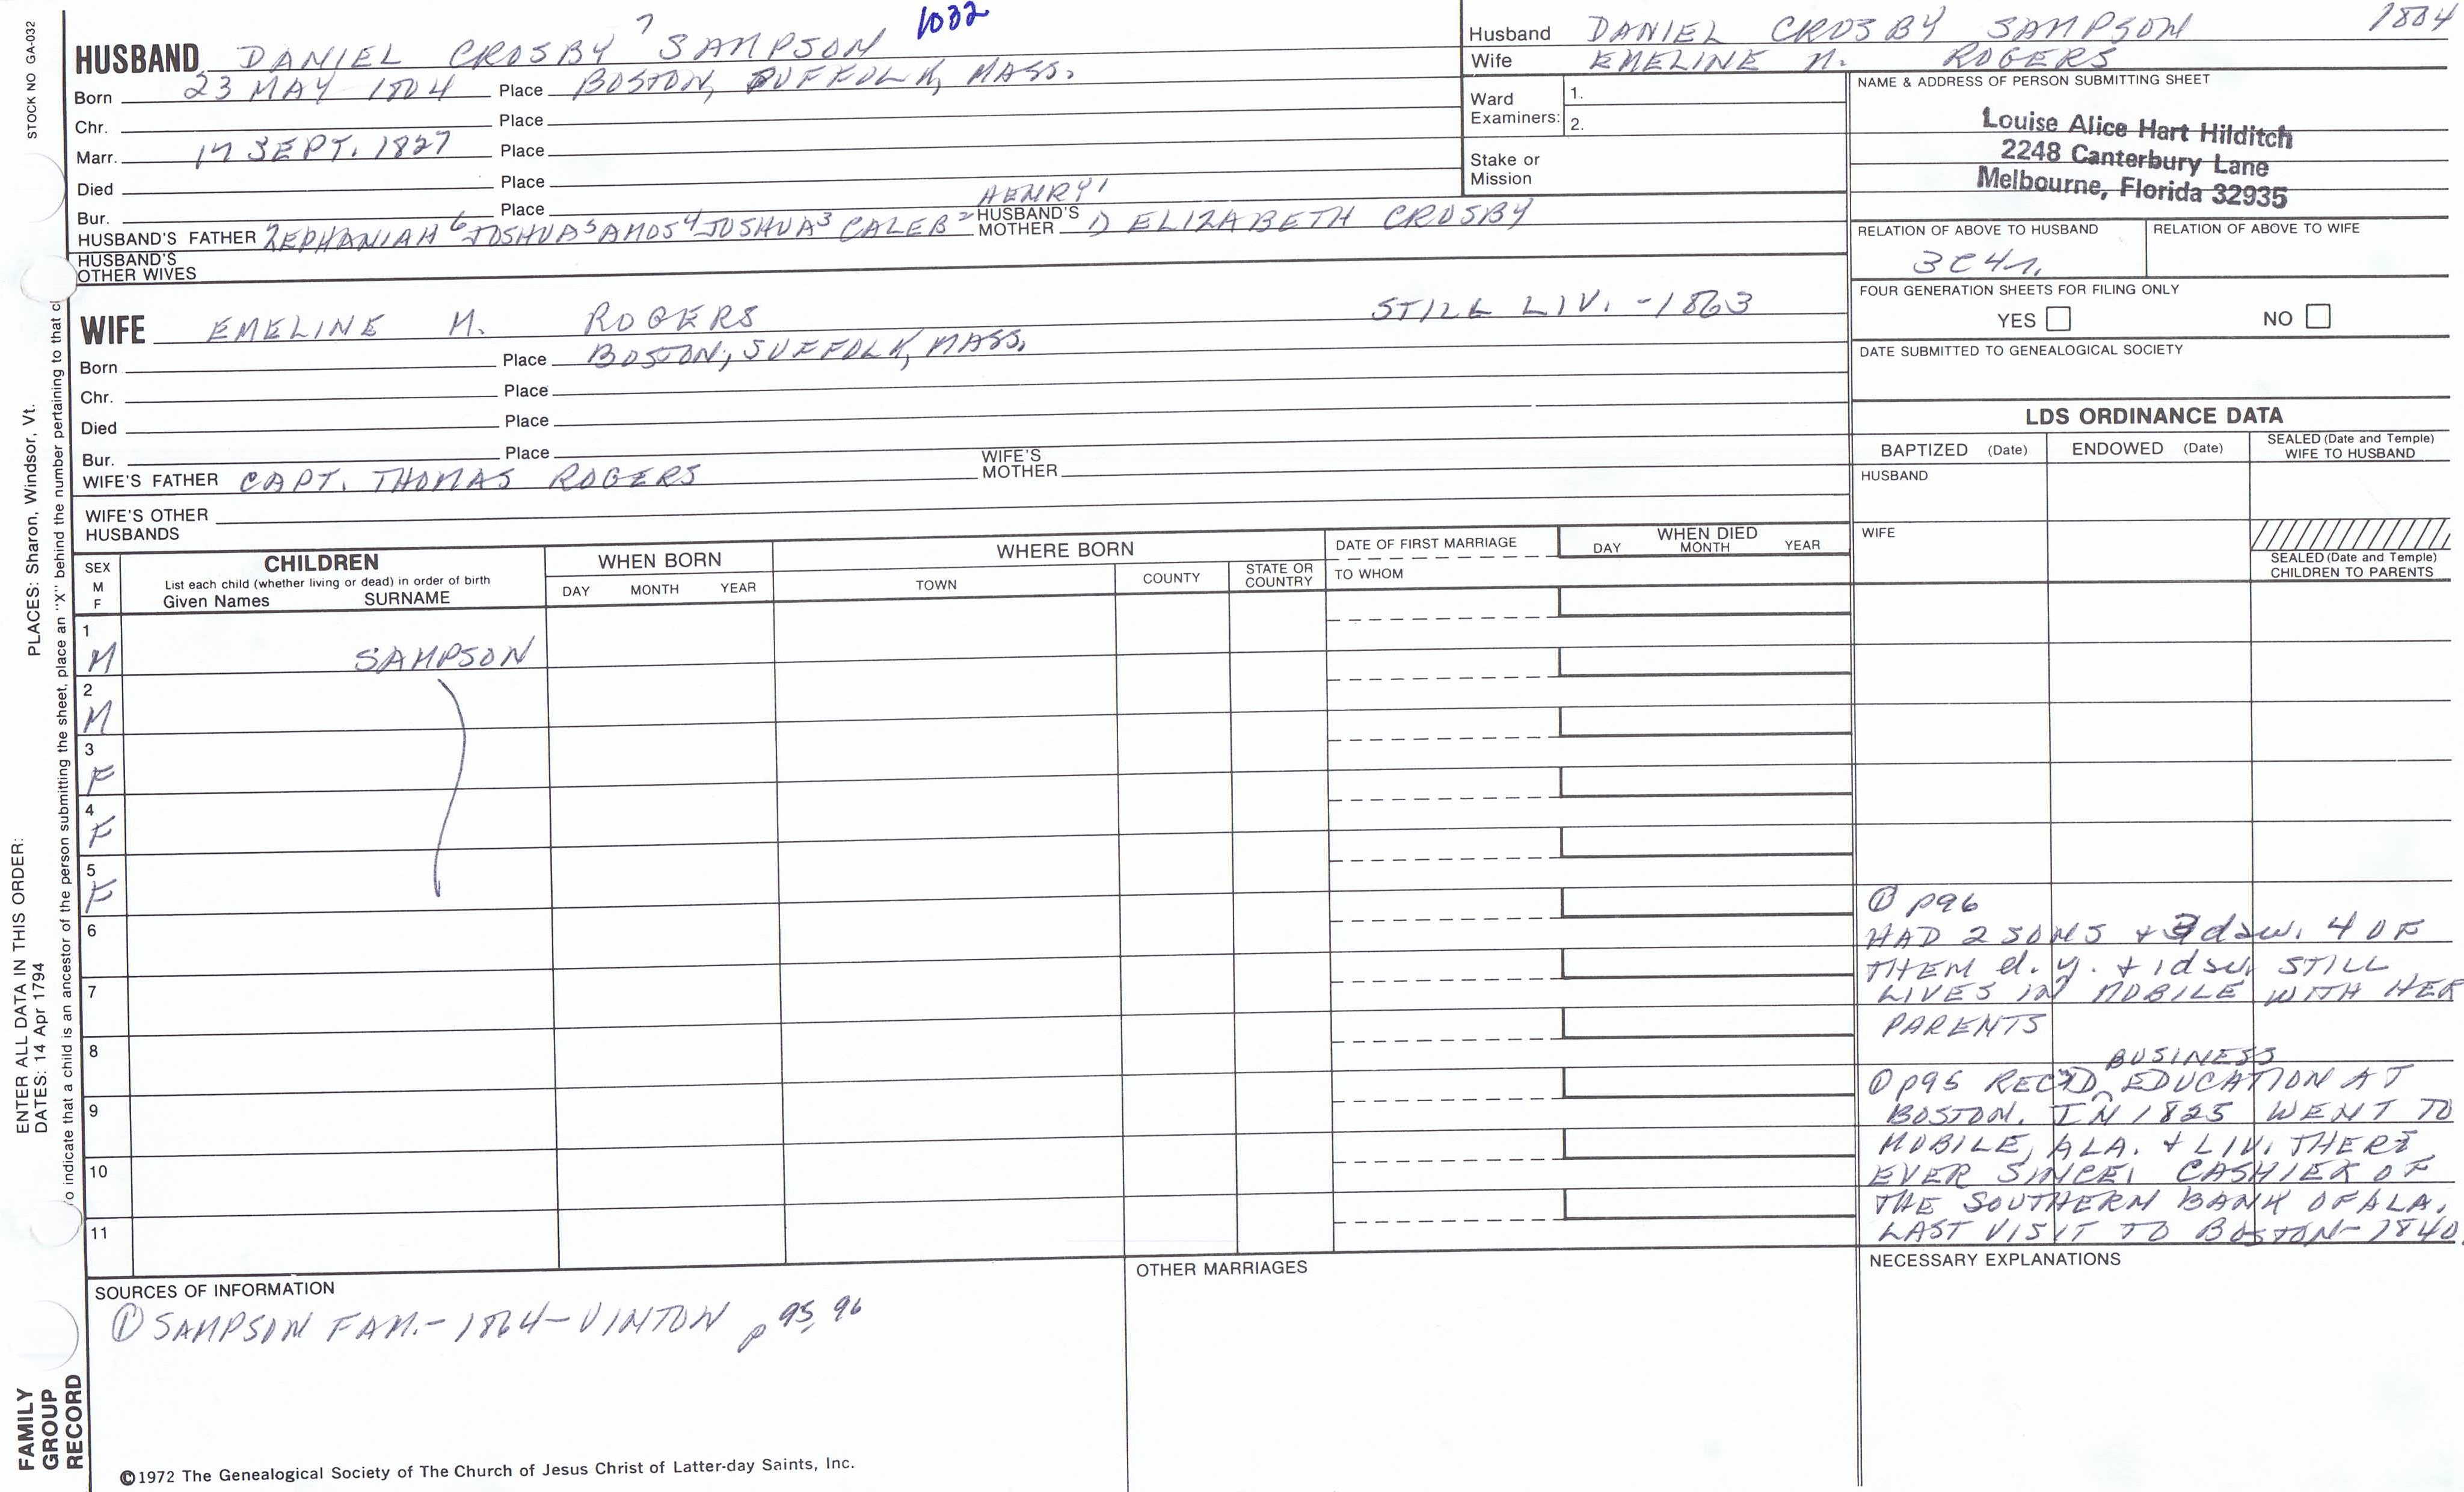 STOCK NO GA-032
1032
HUSBAND DANIEL CROSBY 7 SAMPSON
Born 23 MAY 1804 Place BOSTON, SUFFOLK, MASS.
Chr. Place
Marr. 17 SEPT. 1827 Place
Died Place
Bur. Place
HENRY1
HUSBAND'S FATHER ZEPHANIAH6 JOSHUA5 AMOS4 JOSHUA3 CALEB2 HUSBAND'S MOTHER 1) ELIZABETH CROSBY
HUSBAND'S OTHER WIVES
WIFE EMELINE M. ROGERS STILL LIV. - 1863
Born Place BOSTON, SUFFOLK, MASS.
Chr. Place
Died Place
Bur. Place
WIFE'S FATHER CAPT. THOMAS ROGERS WIFE'S MOTHER
WIFE'S OTHER HUSBANDS
Husband DANIEL CROSBY SAMPSON 1804
Wife EMELINE M. ROGERS
Ward Examiners: 1.
2.
Stake or Mission
NAME & ADDRESS OF PERSON SUBMITTING SHEET
Louise Alice Hart Hilditch
2248 Canterbury Lane
Melbourne, Florida 32935
RELATION OF ABOVE TO HUSBAND RELATION OF ABOVE TO WIFE
3C4r.
FOUR GENERATION SHEETS FOR FILING ONLY
YES NO
DATE SUBMITTED TO GENEALOGICAL SOCIETY
LDS ORDINANCE DATA
BAPTIZED (Date) ENDOWED (Date) SEALED (Date and Temple) WIFE TO HUSBAND
HUSBAND
WIFE
SEALED (Date and Temple) CHILDREN TO PARENTS
SEX M F
CHILDREN
List each child (whether living or dead) in order of birth
Given Names SURNAME
WHEN BORN
DAY MONTH YEAR
WHERE BORN
TOWN COUNTY STATE OR COUNTRY
DATE OF FIRST MARRIAGE
TO WHOM
WHEN DIED
DAY MONTH YEAR
1 M SAMPSON
2 M
3 F
4 F
5 F
6
7
8
9
10
11
① p96
HAD 2 SONS + 3 dau. 4 OF
THEM d. y. + 1 dau STILL
LIVES IN MOBILE WITH HER
PARENTS
BUSINESS
① p95 REC'D ^ EDUCATION AT
BOSTON. IN 1825 WENT TO
MOBILE, ALA. + LIV. THERE
EVER SINCE. CASHIER OF
THE SOUTHERN BANK OF ALA.
LAST VISIT TO BOSTON - 1840.
SOURCES OF INFORMATION
① SAMPSON FAM. - 1864 - VINTON p 95, 96
OTHER MARRIAGES
NECESSARY EXPLANATIONS
©1972 The Genealogical Society of The Church of Jesus Christ of Latter-day Saints, Inc.
FAMILY GROUP RECORD
ENTER ALL DATA IN THIS ORDER:
DATES: 14 Apr 1794 PLACES: Sharon, Windsor, Vt.
o indicate that a child is an ancestor of the person submitting the sheet, place an "X" behind the number pertaining to that c